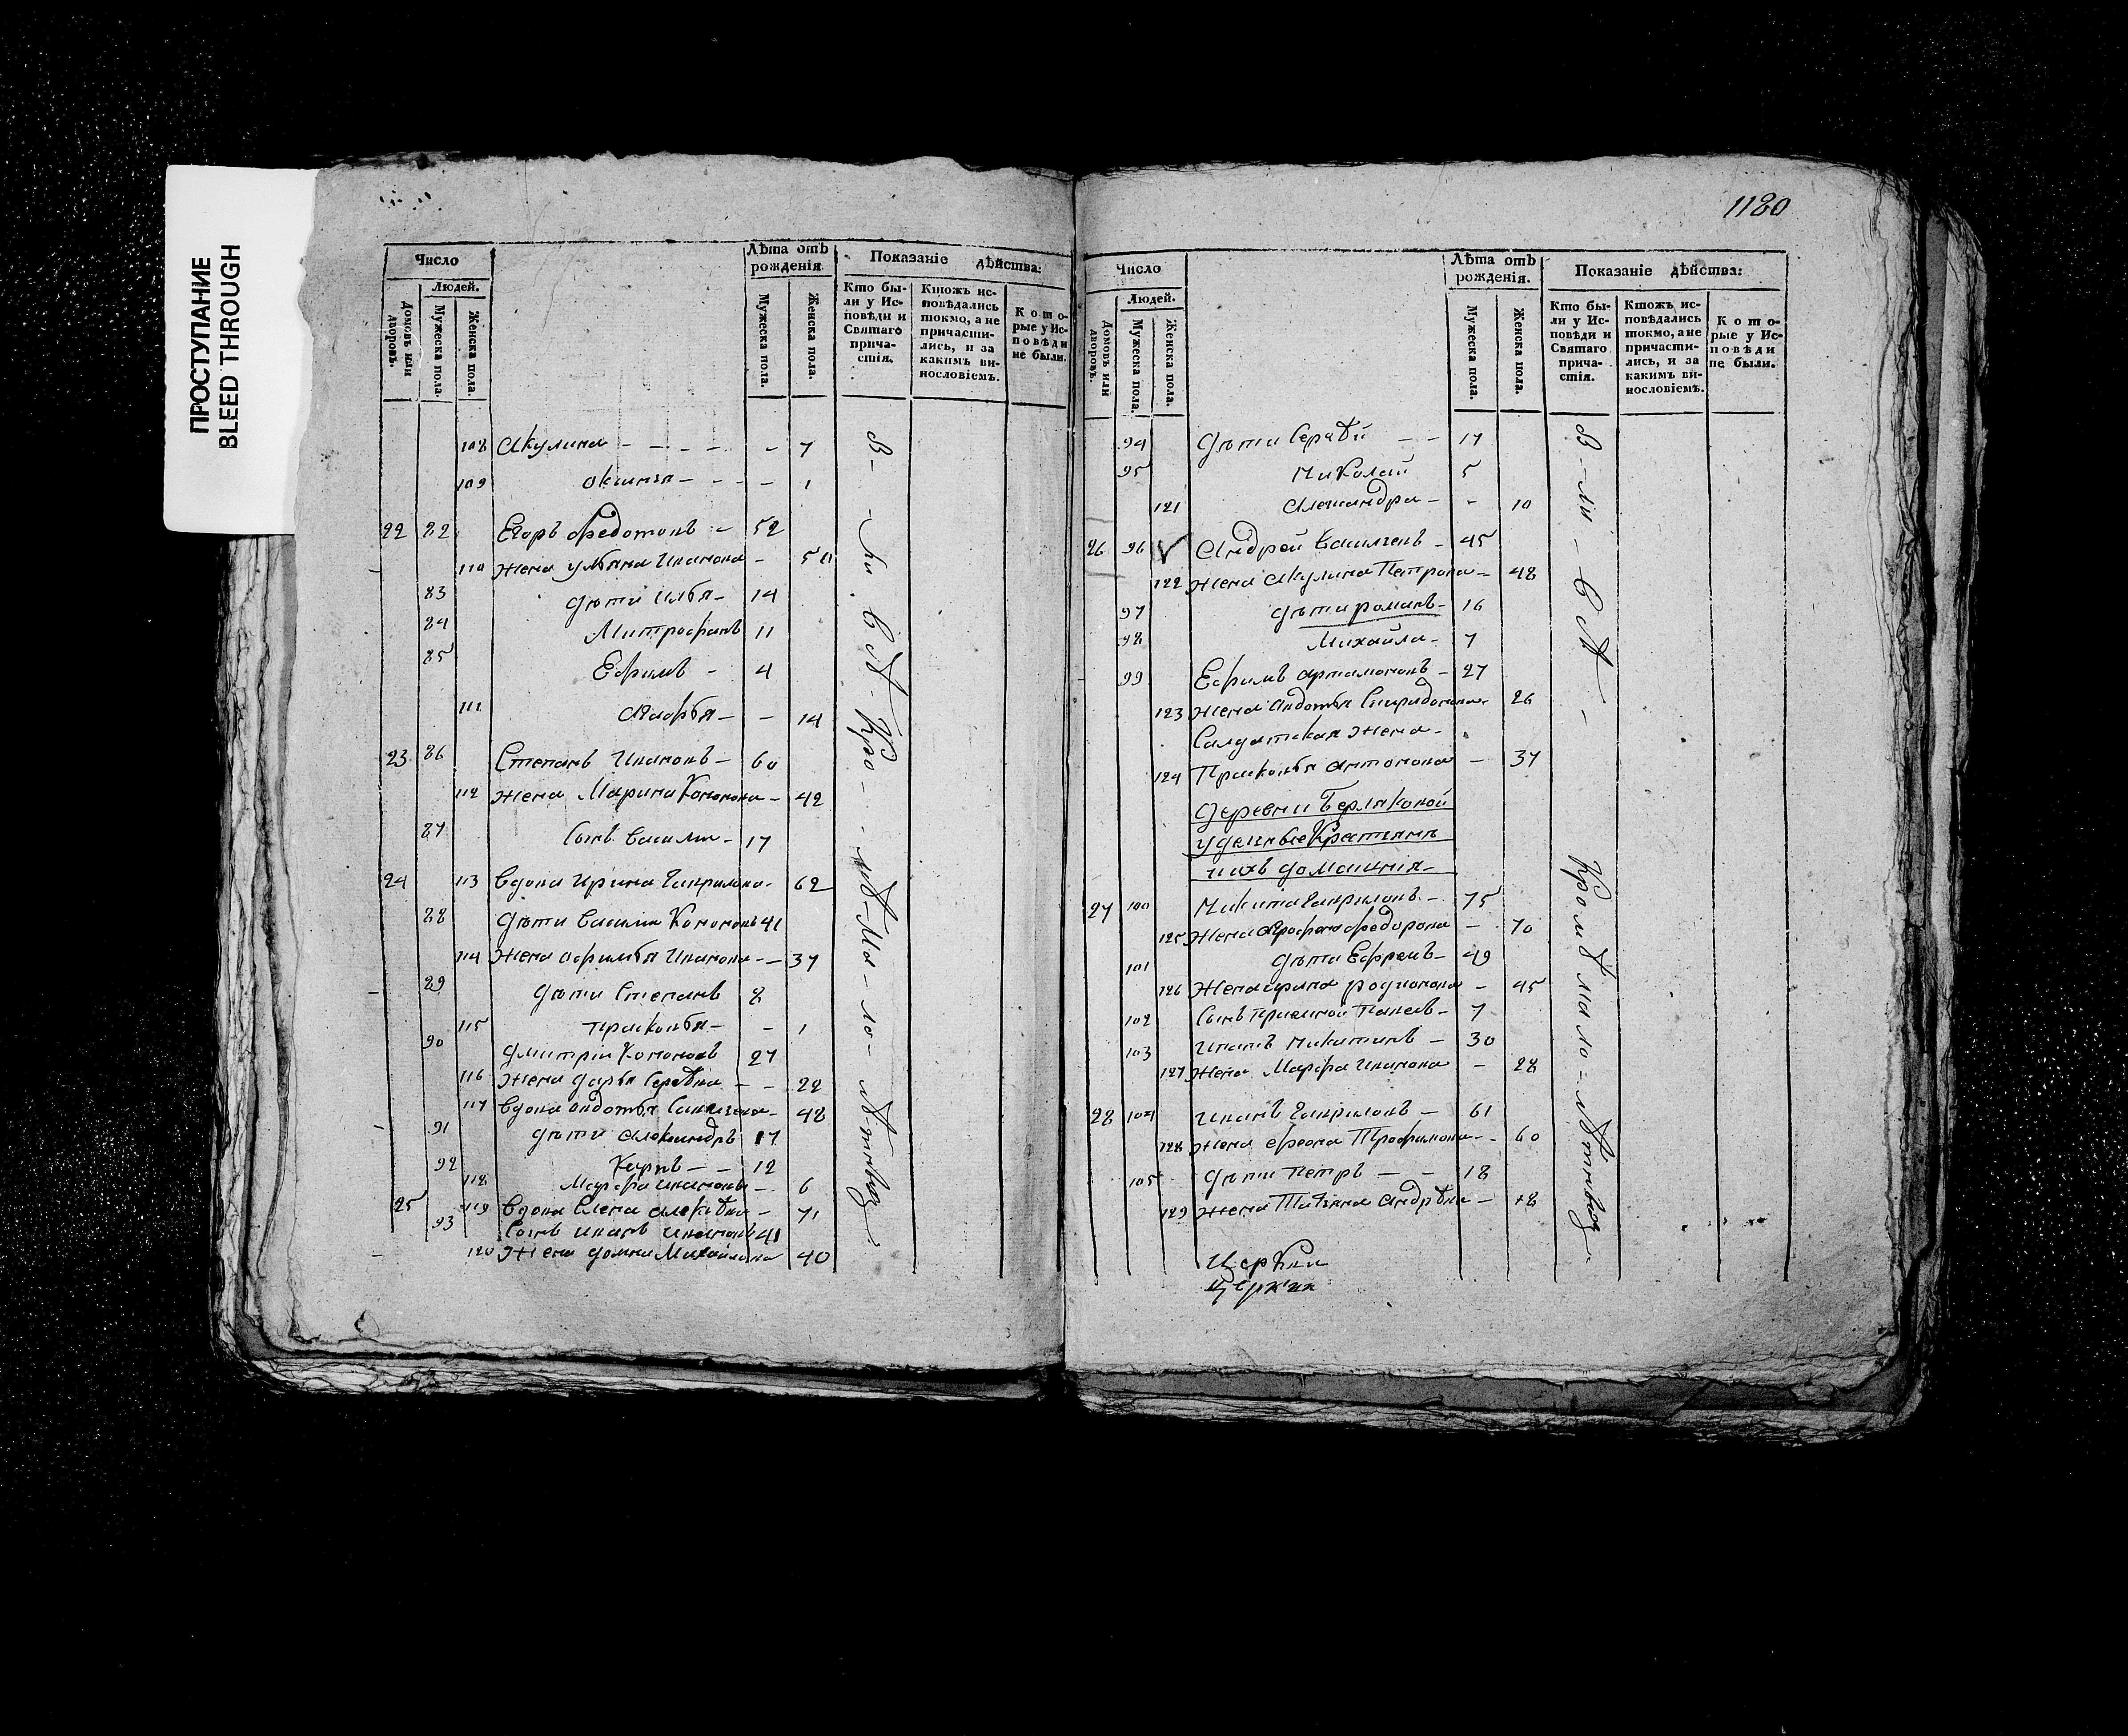 ПРОСТУПАНИЕ
BLEED THROUGH
Число
Людей.
Домовъ или дворовъ.
Мужеска пола.
Женска пола.
Лѣта отъ рожденія.
Мужеска пола.
Женска пола.
Показаніе дѣйства:
Кто бы-
ли у Ис-
повѣди и
Святаго
прича-
стія.
Ктожъ ис-
повѣдались
токмо, а не
причасти-
лись, и за
какимъ ви-
нословіемъ.
Кото-
рые у Ис-
повѣди
не были.
108 Акулина - - - - - 7
109 Оксинья - - - - 1
22 82 Егоръ Федотовъ - 52
110 Жена Ульяна Иванова - 50
83 Дѣти Илья - 14
84 Митрофанъ 11
85 Ефимъ - 4
111 Марфа - - 14
23 86 Степанъ Ивановъ - 60
112 Жена Марина Кононова - 42
87 Сынъ Василии - 17
24 113 Вдова Ирина Гаврилова - 62
88 Дѣти Василии Кононовъ 41
114 Жена Афимья Иванова - - 37
89 Дѣти Степанъ 8
115 Прасковья - - 1
90 Дмитрии Кононовъ 27
116 Жена Дарья Сергѣева - - 22
117 Вдова Авдотья Савельева - 48
91 Дѣти Александръ 17
92 Карпъ - - 12
118 Марфа Иванова - 6
25 119 Вдова Елена Алексѣева - 71
93 Сынъ Иванъ Ивановъ 41
120 Жена Домна Михайлова 40
1180
Число
Людей.
Домовъ или дворовъ.
Мужеска пола.
Женска пола.
Лѣта отъ рожденія.
Мужеска пола.
Женска пола.
Показаніе дѣйства:
Кто бы-
ли у Ис-
повѣди и
Святаго
прича-
стія.
Ктожъ ис-
повѣдались
токмо, а не
причасти-
лись, и за
какимъ ви-
нословіемъ.
Кото-
рые у Ис-
повѣди
не были.
94 Дѣти Сергѣй - - 17
95 Николай 5
121 Александра - - 10
26 96 Андрей Васильевъ - 45
122 Жена Акулина Петрова - 48
97 Дѣти Романъ - 16
98 Михайла - 7
99 Ефимъ Артамоновъ - 27
123 Жена Авдотья Спиридонова 26
Салдатская Жена -
124 Прасковья Антонова - 37
Деревни Берляковой
Удельные Крестьяне
и ихъ домашния -
27 100 Никита Гавриловъ - 75
125 Жена Федорова - 70
101 Дѣти Ефремъ - 49
126 Жена Ирина Родионова - 45
102 Сынъ приемной - 7
103 Игнатъ Никитинъ - 30
127 Жена Марфа Иванова - 28
28 104 Иванъ Гавриловъ - 61
128 Жена Трофимова - - 60
105 Дѣти Петръ - - 18
129 Жена Татьяна Андрѣева - 18
Церкви
Церкви
Кромѣ малолѣтныхъ